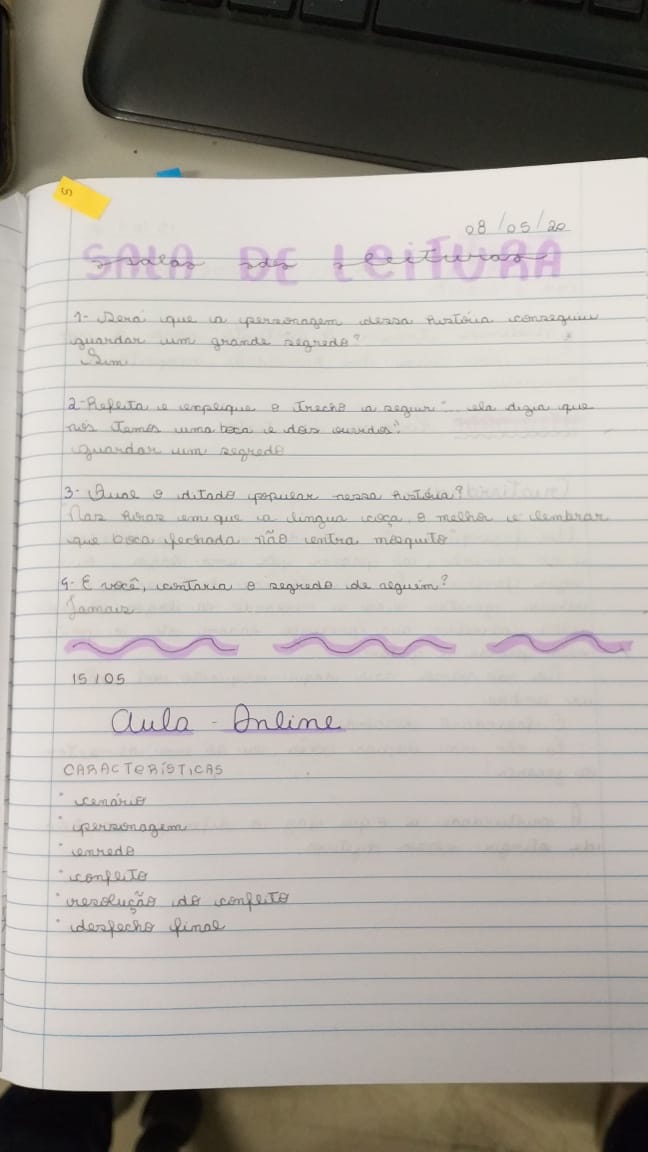 5
08/05/20
SALA DE LEITURA
salas de leituras
1- Será que a personagem dessa história conseguiu
guardar um grande segredo?
Sim
2- Reflita e explique o trecho a seguir "... ela dizia que
nós temos uma boca e dois ouvidos".
guardar um segredo
3- Qual o ditado popular nessa história?
"Nas horas em que a língua coça, o melhor é lembrar
que boca fechada não entra mosquito"
4- E você, contaria o segredo de alguém?
Jamais
15/05
Aula - Online
CARACTERÍSTICAS
• cenário
• personagem
• enredo
• conflito
• resolução do conflito
• desfecho final